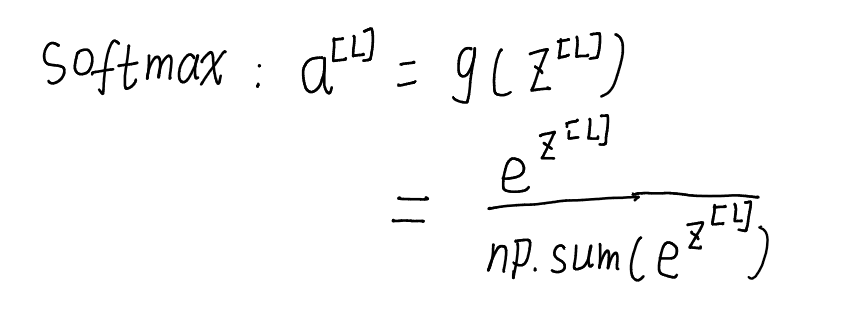 Softmax : a^[L] = g(z^[L])
= e^z^[L] / np.sum(e^z^[L])